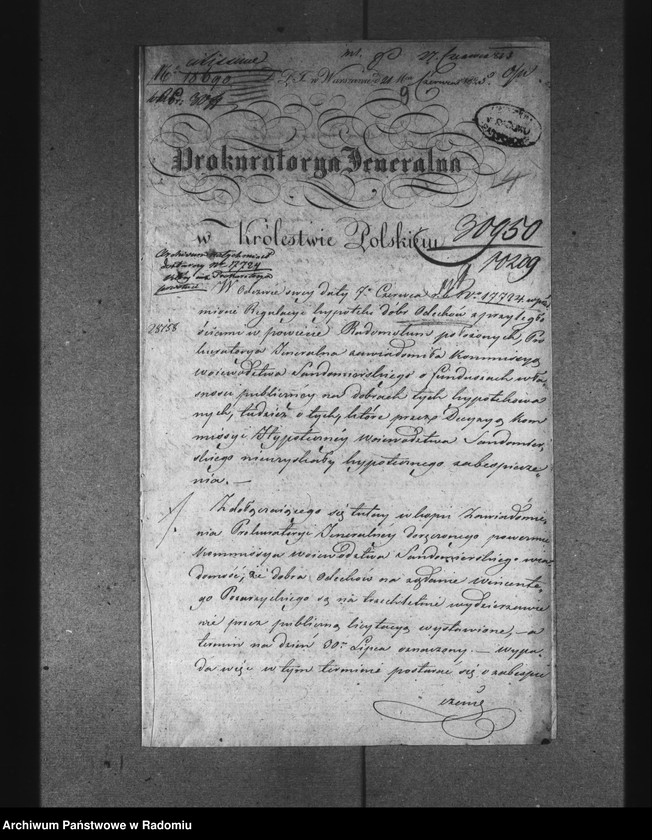 Prokuratorya Jeneralna
w Królestwie Polskim
30950
10209
28158
W Odezwie swey daty 7. Czerwca r. b. No 17724 wzglę
Regulacyi hypoteki dóbr Odechów z przyległo
ściami w powiecie Radomskim położonych, Pro
kuratorya Jeneralna zawiadomiła Kommissyą
Wojewodztwa Sandomierskiego o funduszach wła
sności publiczney na dobrach tych hypotekowa
nych, tudzież o tych, które przez Decyzyą Kom
missyi Hypoteczney Wojewodztwa Sandomier
skiego nieuzyskały hypotecznego zabespiecze
nia. —
Z dołączającego się tutay w kopii Zawiadomie
nia Prokuratoryi Jeneralney doręczonego poweźmie
Kommissya Wojewodztwa Sandomierskiego wia
domość, że dobra Odechów na żądanie Wincente
go są na trzechletnie wydzierżawie
nie przez publiczną licytacyą wystawione, — a
termin na dzień 30. Lipca oznaczony. — Wypa
da więc w tym terminie postarać się o zabespie
czenie
Archiwum Państwowe w Radomiu